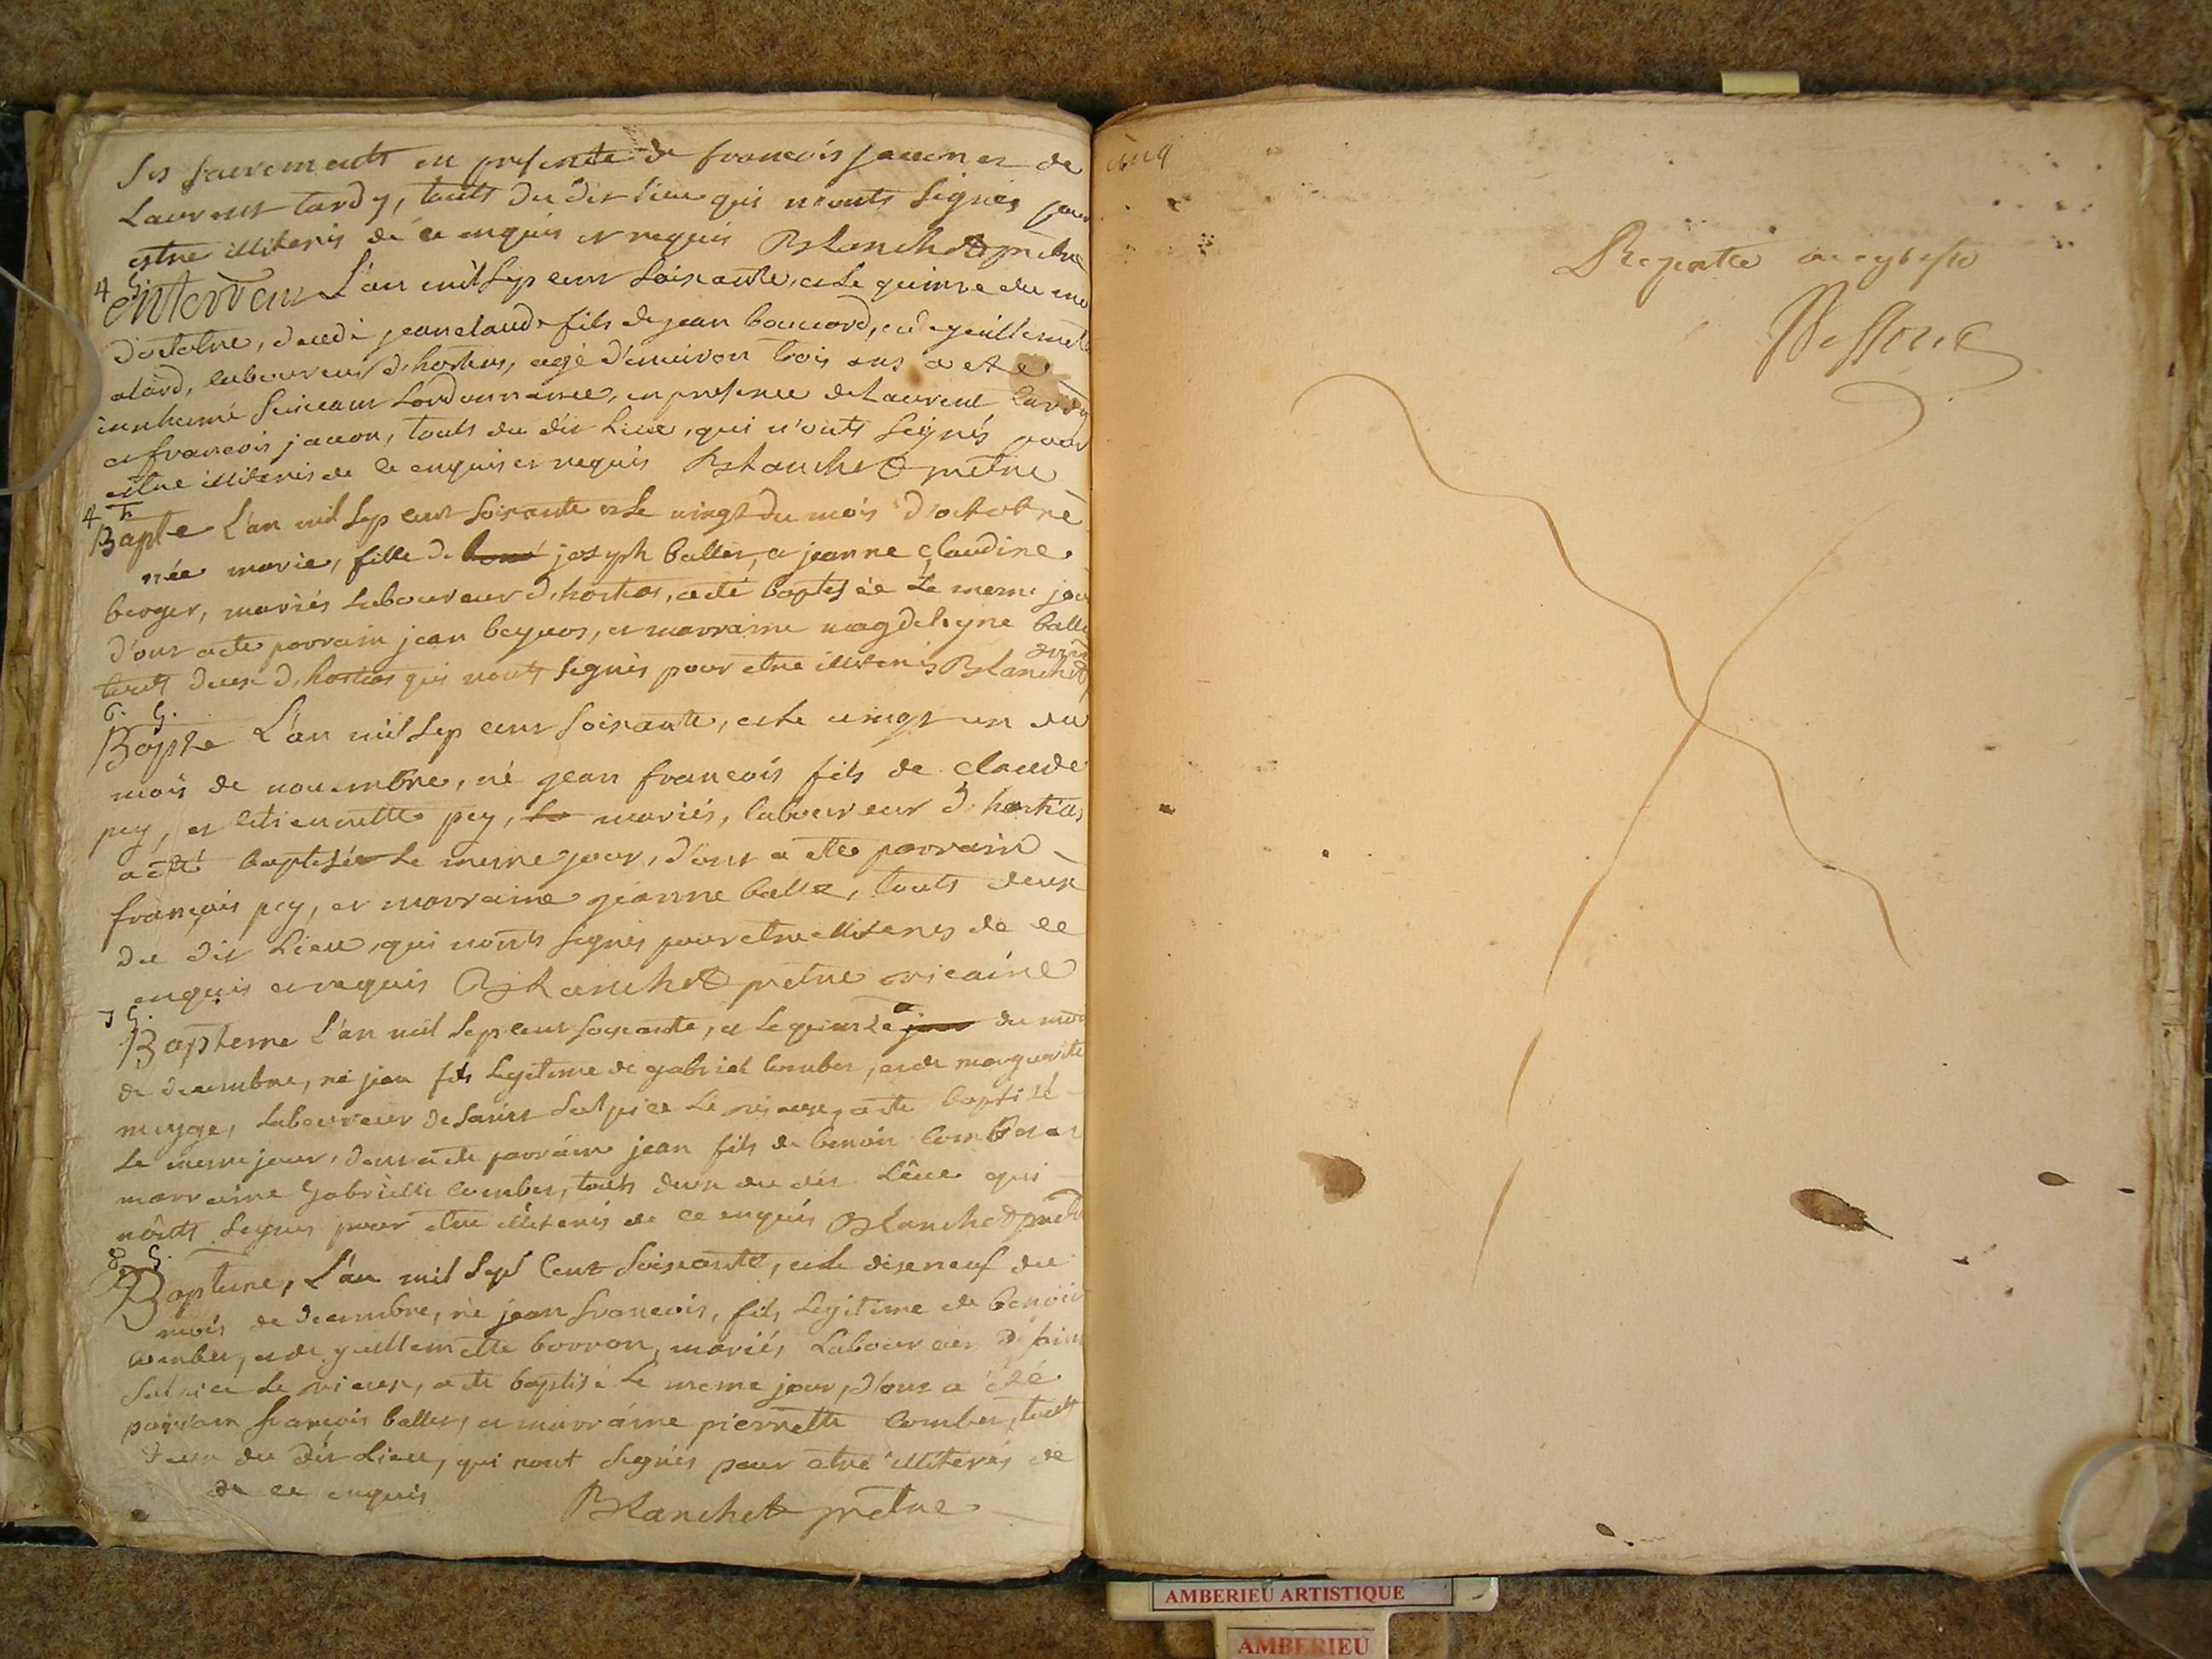 ses sacrements en presente de francois jacon et de
Laurent tardy, touts du dit lieu qui n'onts signés pour
estre illiterés de ce enquis et requis Blanchet pretre
4 G.
enterrem L'an mil sep cent soixante, et le quinze du moi
d'octobre, decedé jean claude fils de jean boccord, et de guillemette
alard, laboureur d'hostias, agé d'environ trois ans a eté
innhumé suiveant L'ordonnance, en presence de Laurent tardy
et francois jacon, touts du dit Lieu, qui n'onts signés pour
estre illiterés de ce enquis et requis Blanchet pretre
4 F.
Bapte L'an mil sep cent soixante et Le vingt du mois d'octobre
née marie, fille de joseph ballet, et jeanne claudine
berger, mariés Laboureur d'hostias, a eté baptisée Le meme jou
d'ont a eté parrain jean beguos, et marraine magdeleyne balle
touts deux d'hostias qui nonts signés pour etre illiterés Blanchet pretre
6. G.
Bapte L'an mil sep cent soixante, et Le vingt un du
mois de novembre, né jean francois fils de claude
pey, et etiennette pey, mariés, laboureur d'hostias
a eté baptisée Le meme jour, d'ont a eté parrain
françois pey, et marraine jeanne ballet, touts deux
du dit Lieu, qui nonts signés pour etre illiterés de ce
enquis et requis Blanchet pretre vicaire
7 G.
Bapteme L'an mil sep cent soixante, et Le quinze du mois
de decembre, né jean fils Legitime de gabriel combet, et de marguerite
mugge, Laboureur de saint sulpice Le vieux, a eté baptisé
Le meme jour, dont a eté parrain jean fils de benoit combet et
marraine gabrielle combet, touts deux du dit Lieu qui
nonts signés pour etre illiterés de ce enquis Blanchet pretre
8. G.
Bapteme, L'an mil sept cent soixante, et Le dixeneuf du
mois de decembre, né jean francois, fils Legitime de benoit
combet, et de guillemette borron, mariés Laboureur de saint
sulpice Le vieux, a eté baptisé Le meme jour, d'ont a été
parrain francois ballet, et marraine pierrette combet, touts
deux du dit Lieu, qui nont signés pour etre illiterés de
de ce enquis Blanchet pretre
cinq
AMBERIEU ARTISTIQUE
AMBERIEU